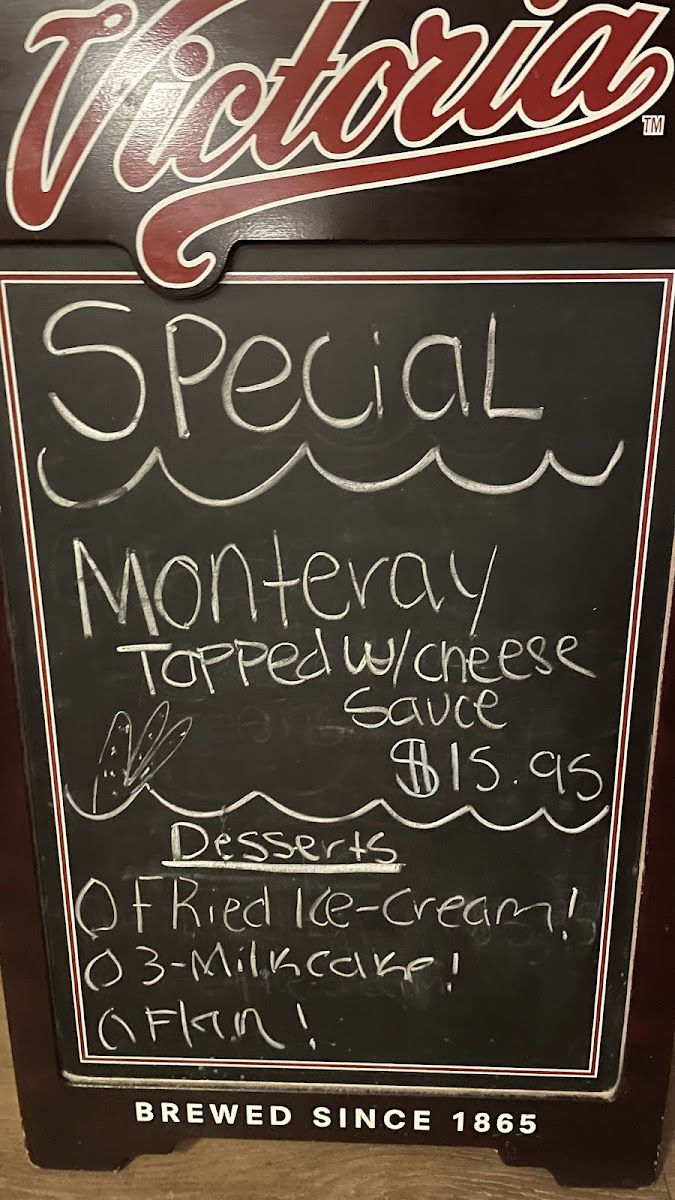 Victoria TM
Special
Monteray
Topped w/cheese
sauce
$15.95
Desserts
O FRied Ice-cream!
O 3-Milkcake!
O Flan!
BREWED SINCE 1865